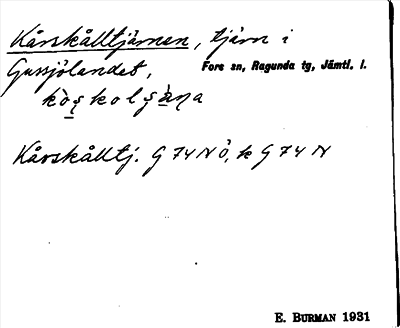 Kårskålltjärnen, tjärn i
Gussjölandet, Fors sn, Ragunda tg, Jämtl. l.
Kårskålltj. G 74 N Ö, k G 74 N
E. BURMAN 1931